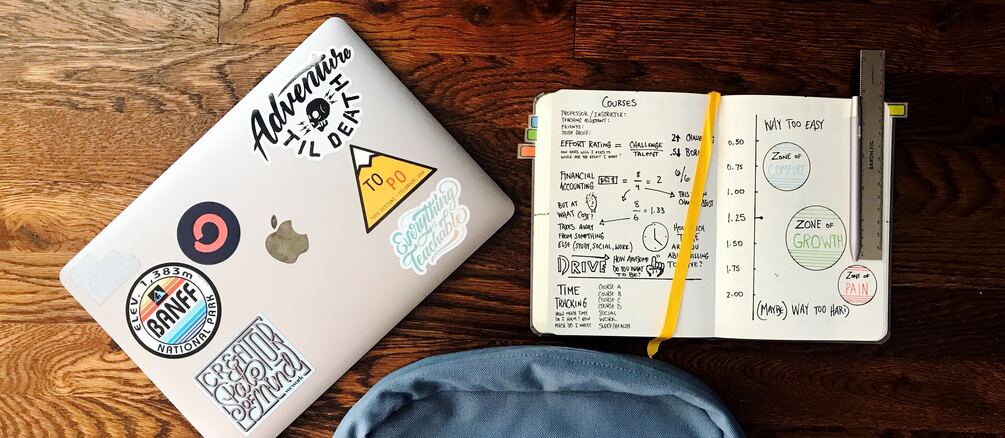 Adventure
TIL DEATH
TO PO
TOPO DESIGNS · COLORADO, USA
Everything
Teachable
ELEV. 1,383m
BANFF
NATIONAL PARK
CREATOR
State
of Mind
COURSES
PROFESSOR / INSTRUCTOR:
TEACHING ASSISTANT:
FRIENDS:
STUDY GROUP:
EFFORT RATING = CHALLENGE
TALENT
HOW HARD WILL I NEED TO
WORK FOR THE EFFORT I WANT?
2↑
.5↓
FINANCIAL
ACCOUNTING
8
4
= 2
6/6
BUT AT
WHAT COST?
8
6
= 1.33
TAKES AWAY
FROM SOMETHING
ELSE (STUDY, SOCIAL, WORK)
DRIVE
HOW AWESOME
DO YOU WANT
TO BE?
TIME
TRACKING
HOW MUCH TIME
DO I HAVE? HOW
MUCH DO I NEED?
COURSE A
COURSE B
COURSE C
COURSE D
SOCIAL
WORK
SLEEP/HEALTH
WAY TOO EASY
0.50
0.75
1.00
1.25
1.50
1.75
2.00
ZONE OF
COMFORT
ZONE OF
GROWTH
ZONE OF
PAIN
(MAYBE) WAY TOO HARD